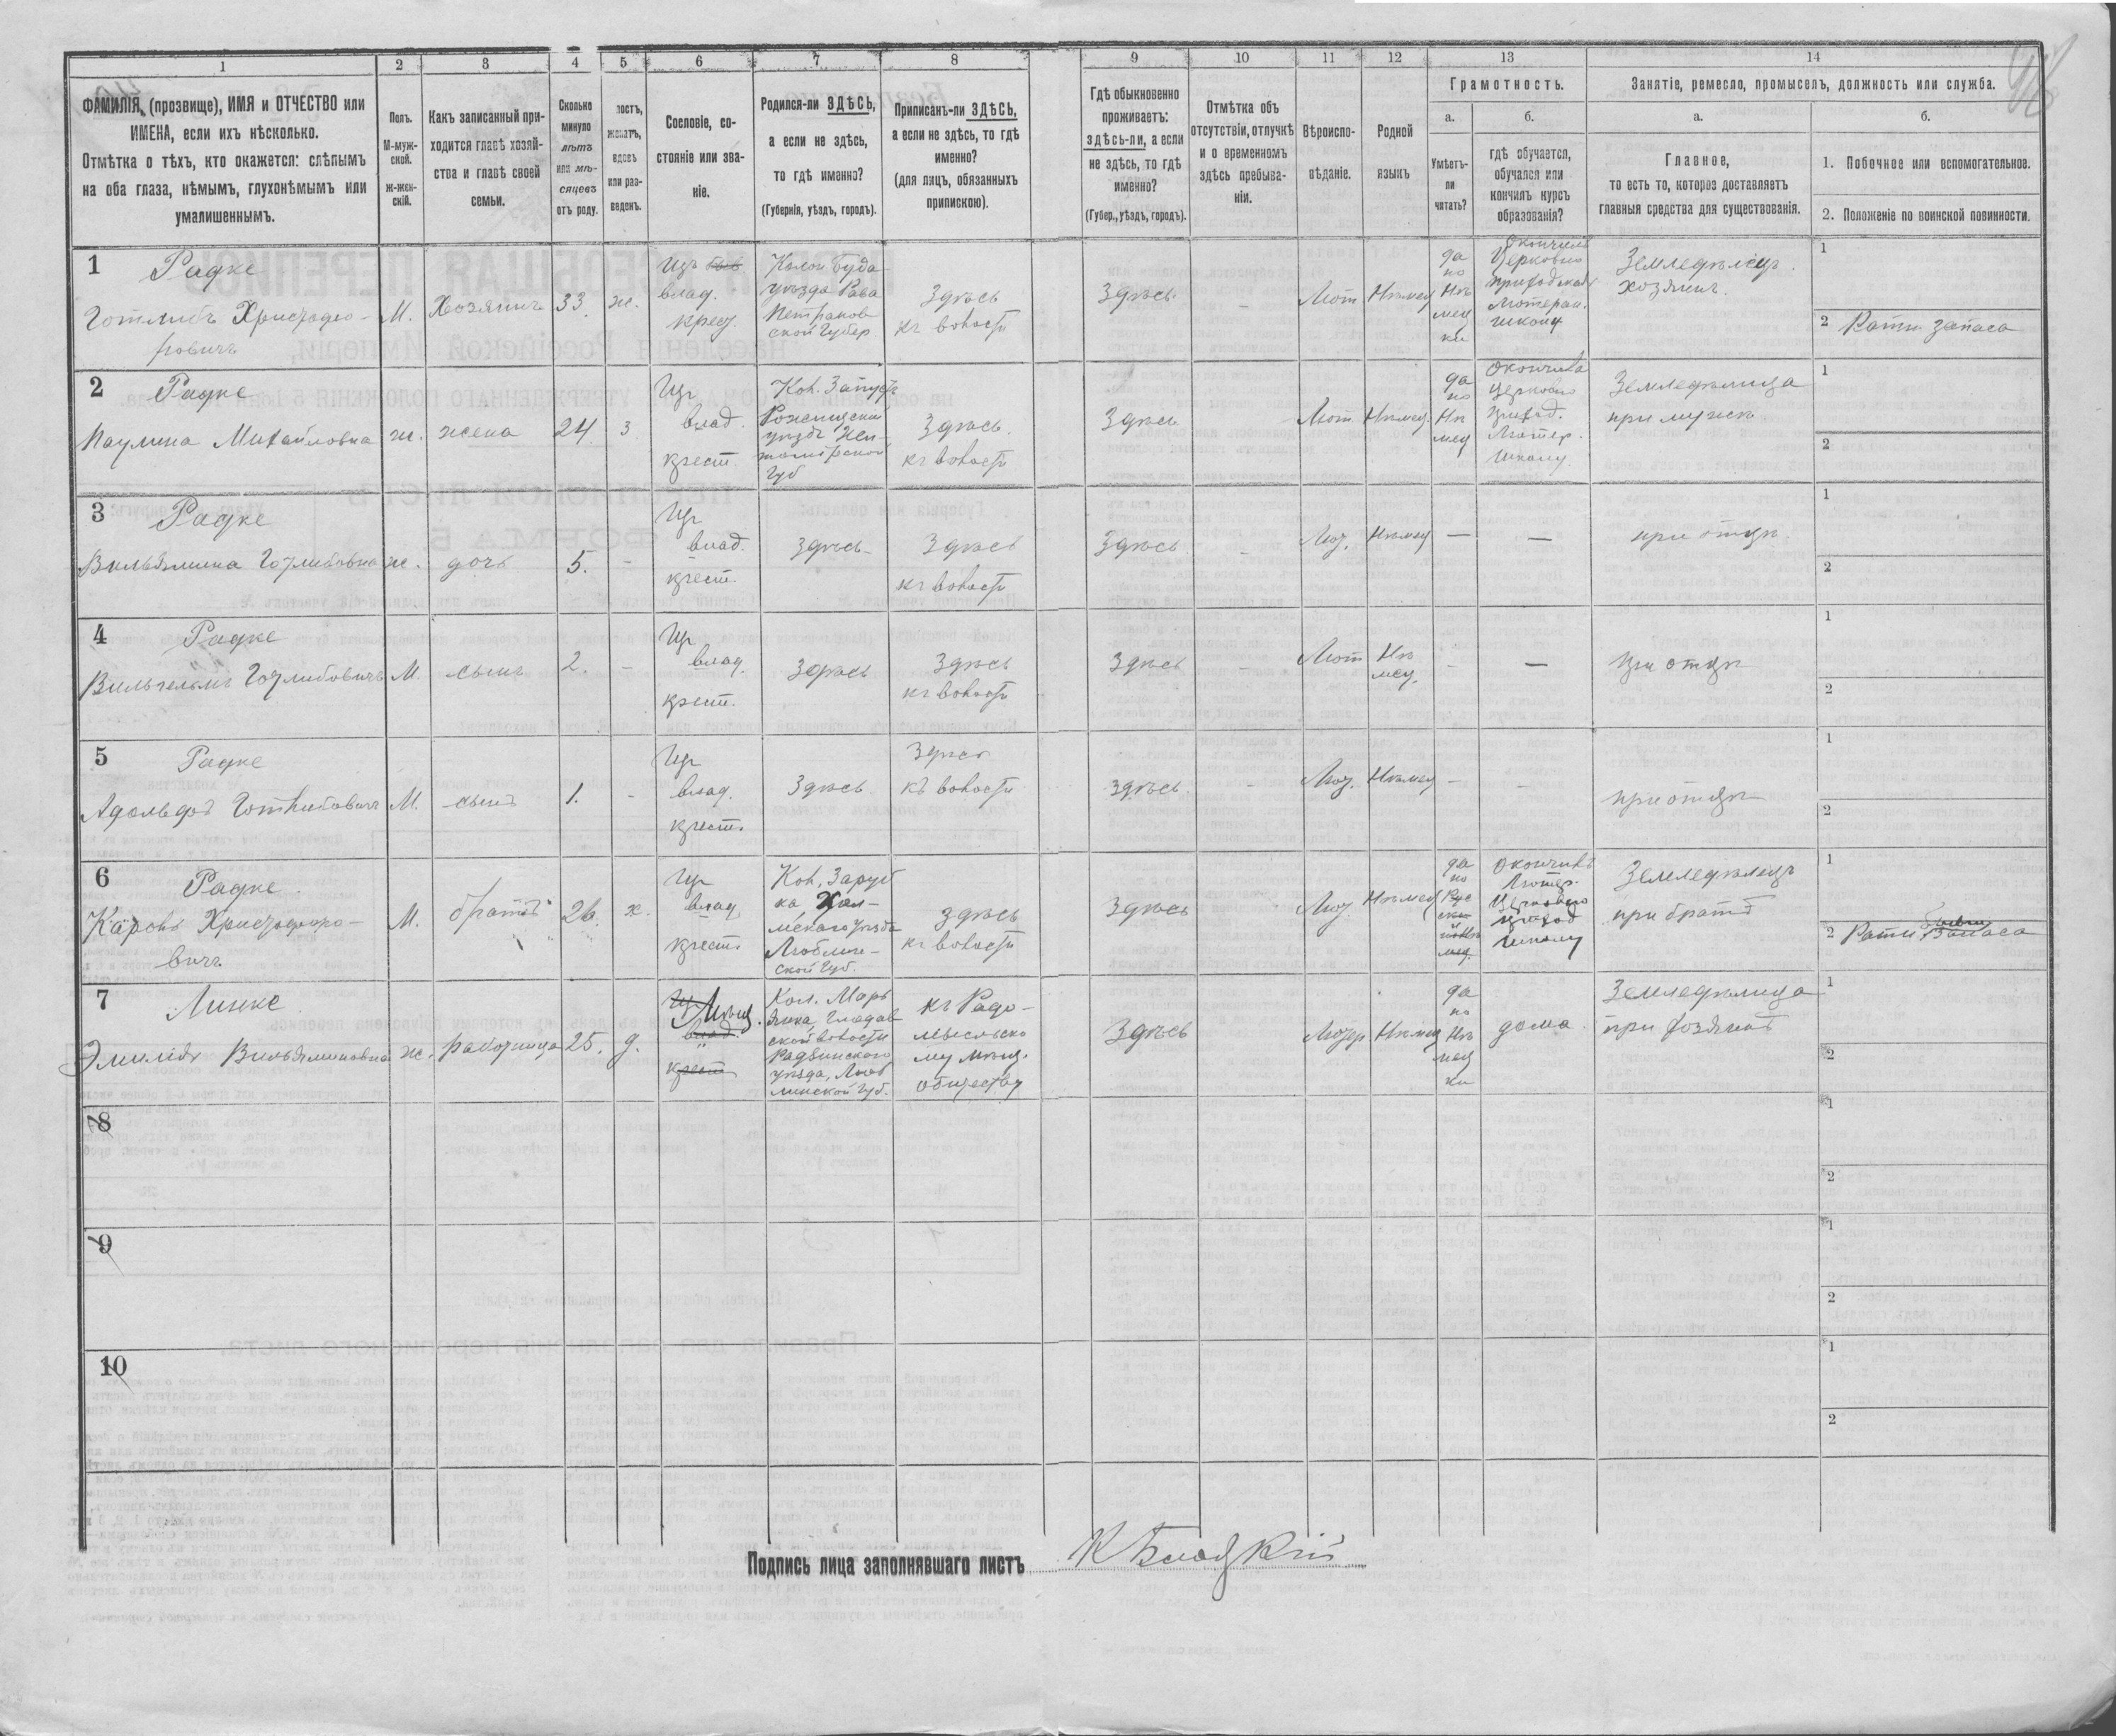 1 2 3 4 5 6 7 8 9 10 11 12 13 14
ФАМИЛІЯ, (прозвище), ИМЯ и ОТЧЕСТВО или
ИМЕНА, если ихъ нѣсколько.
Отмѣтка о тѣхъ, кто окажется: слѣпымъ
на оба глаза, нѣмымъ, глухонѣмымъ или
умалишеннымъ.
Полъ.
М-муж-
ской.
ж-жен-
скій.
Какъ записанный при-
ходится главѣ хозяй-
ства и главѣ своей
семьи.
Сколько
минуло
лѣтъ
или мѣ-
сяцевъ
отъ роду.
лостъ,
женатъ,
вдовъ
или раз-
веденъ.
Сословіе, со-
стояніе или зва-
ніе.
Родился-ли ЗДѢСЬ,
а если не здѣсь,
то гдѣ именно?
(Губернія, уѣздъ, городъ).
Приписанъ-ли ЗДѢСЬ,
а если не здѣсь, то гдѣ
именно?
(для лицъ, обязанныхъ
припискою).
Гдѣ обыкновенно
проживаетъ:
здѣсь-ли, а если
не здѣсь, то гдѣ
именно?
(Губер., уѣздъ, городъ).
Отмѣтка объ
отсутствіи, отлучкѣ
и о временномъ
здѣсь пребыва-
ніи.
Вѣроиспо-
вѣданіе.
Родной
языкъ
Грамотность.
а.
Умѣетъ-
ли
читать?
б.
гдѣ обучается,
обучался или
кончилъ курсъ
образованія?
Занятіе, ремесло, промыселъ, должность или служба.
а.
Главное,
то есть то, котороз доставляетъ
главныя средства для существованія.
б.
1. Побочное или вспомогательное.
2. Положеніе по воинской повинности.
1 Радке
Готлибъ Христофо-
ровичъ
М.
Хозяинъ
33
ж.
Изъ
влад.
крес.
Колон Буда
уѣзда Рава
Петраков
ской Губер.
Здѣсь
къ волости
Здѣсь.
-
Лют.
Нѣмец
да
по
Нѣ
мец
ки
Окончилъ
Церковно
приходскую
Лютеран.
школу
Земледѣлецъ.
хозяинъ.
1
2 Ратн. запаса
2 Радке
Паулина Михайловна
ж.
жена
24
з
Из
влад.
крест.
Здѣсь.
къ волости
Здѣсь
Лют
Нѣмец.
да
по
Нѣ
мец
Окончила
Церковно
Приход.
Лютер.
Школу.
Земледѣлица
при мужѣ
1
2
3 Радке
Вильгелмина Готлибовна
ж.
дочь
5.
-
Из
влад.
крест.
Здѣсь
Здѣсь
къ волости
Здѣсь
-
Лют.
Нѣмец
—
—
при отцѣ.
1
2
4 Радке
Вильгельмъ Готлибовичъ
М.
сынъ
2.
-
Из
влад.
крест.
Здѣсь
Здѣсь
къ волости
Здѣсь
-
Лют
Нѣ
мец.
-
—
при отцѣ
1
2
5 Радке
Адольфъ Готлибовичъ
М.
сынъ
1.
-
Из
влад.
крест.
Здѣсь.
Здѣсь
къ волости
Здѣсь.
-
Лют.
Нѣмец
-
-
при отцѣ
1
2
6 Радке.
Карлъ Христофоро-
вичъ
М.
братъ
26.
х.
Из
влад.
крест.
Кол. Заруб
ка Хол-
мскаго уѣзда
Люблин-
ской Губ.
Здѣсь
къ волости
Здѣсь
Лют.
Нѣмец
да
по
Окончилъ
Лютер.
Церковно
приход
Школу
Земледѣлецъ
при братѣ
1
2 Ратн.
запаса
7 Линке.
Эмилія Вильгелминовна
ж.
работница
25.
д.
Мѣщ.
влад.
крест
Кол. Марь
янка,
ской волости
Радзинского
уѣзда, Люб
линской Губ.
къ Радо-
мысльско
му мѣщ.
обществу
Здѣсь
Лютер
Нѣмец
да
по
Нѣ
мец
ки
дома.
Земледѣлица
при хозяинѣ
1
2
8
1
2
9
1
2
10
1
2
Подпись лица заполнявшаго листъ